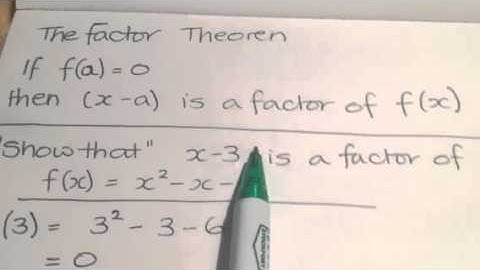 The Factor Theoren
If f(a) = 0
then (x-a) is a factor of f(x)
"Show that" x-3 is a factor of
f(x) = x² - x -
(3) = 3² - 3 - 6
= 0